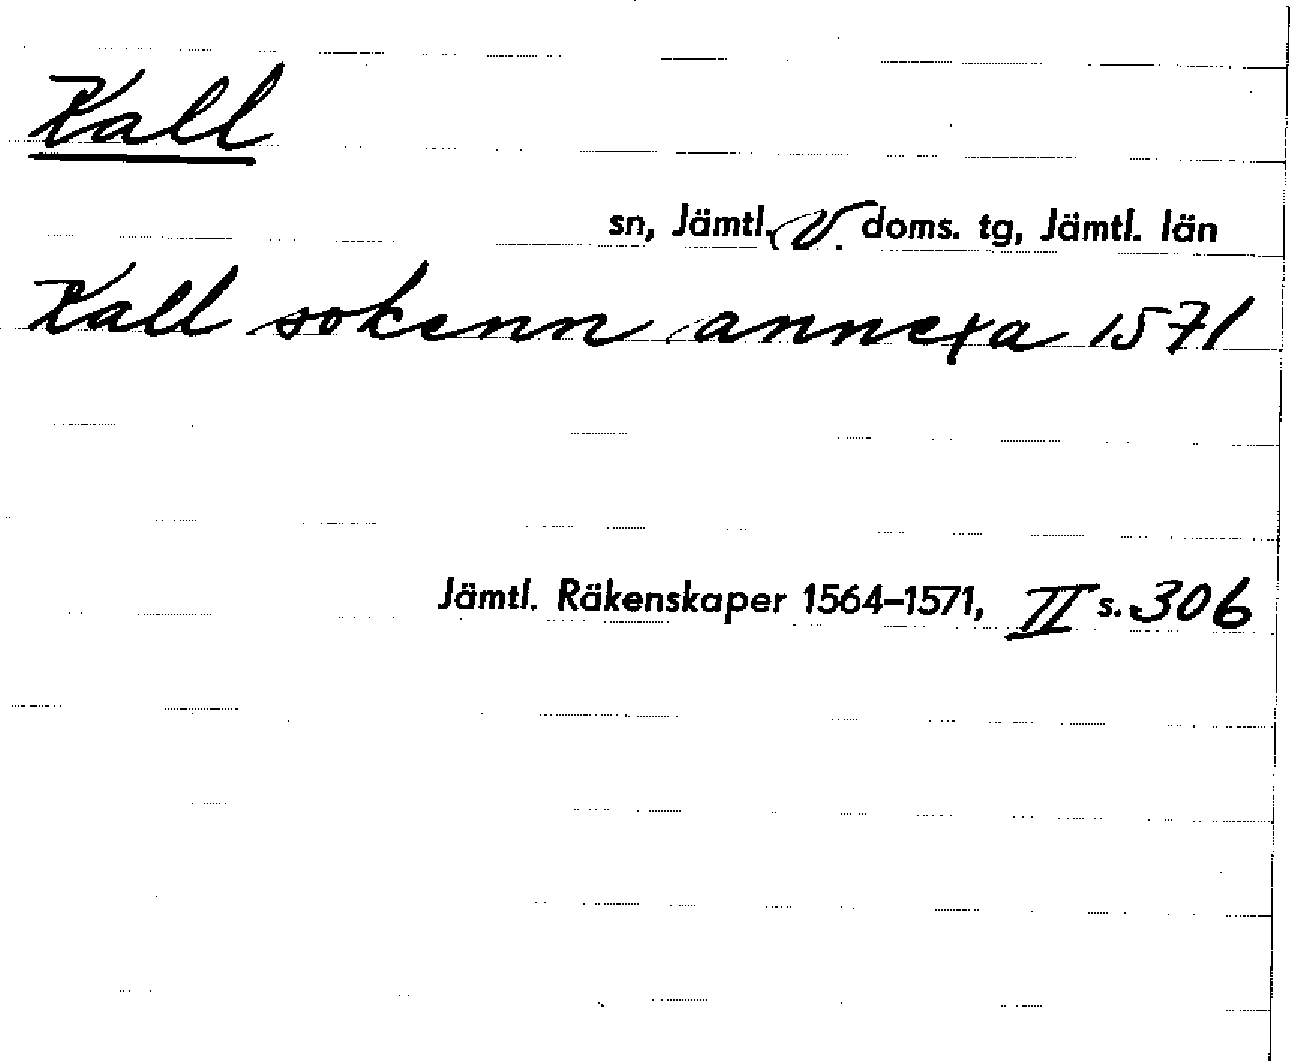 Kall
sn, Jämtl. V. doms. tg, Jämtl. län
Kall sokenn annexa 1571
Jämtl. Räkenskaper 1564–1571, II s. 306